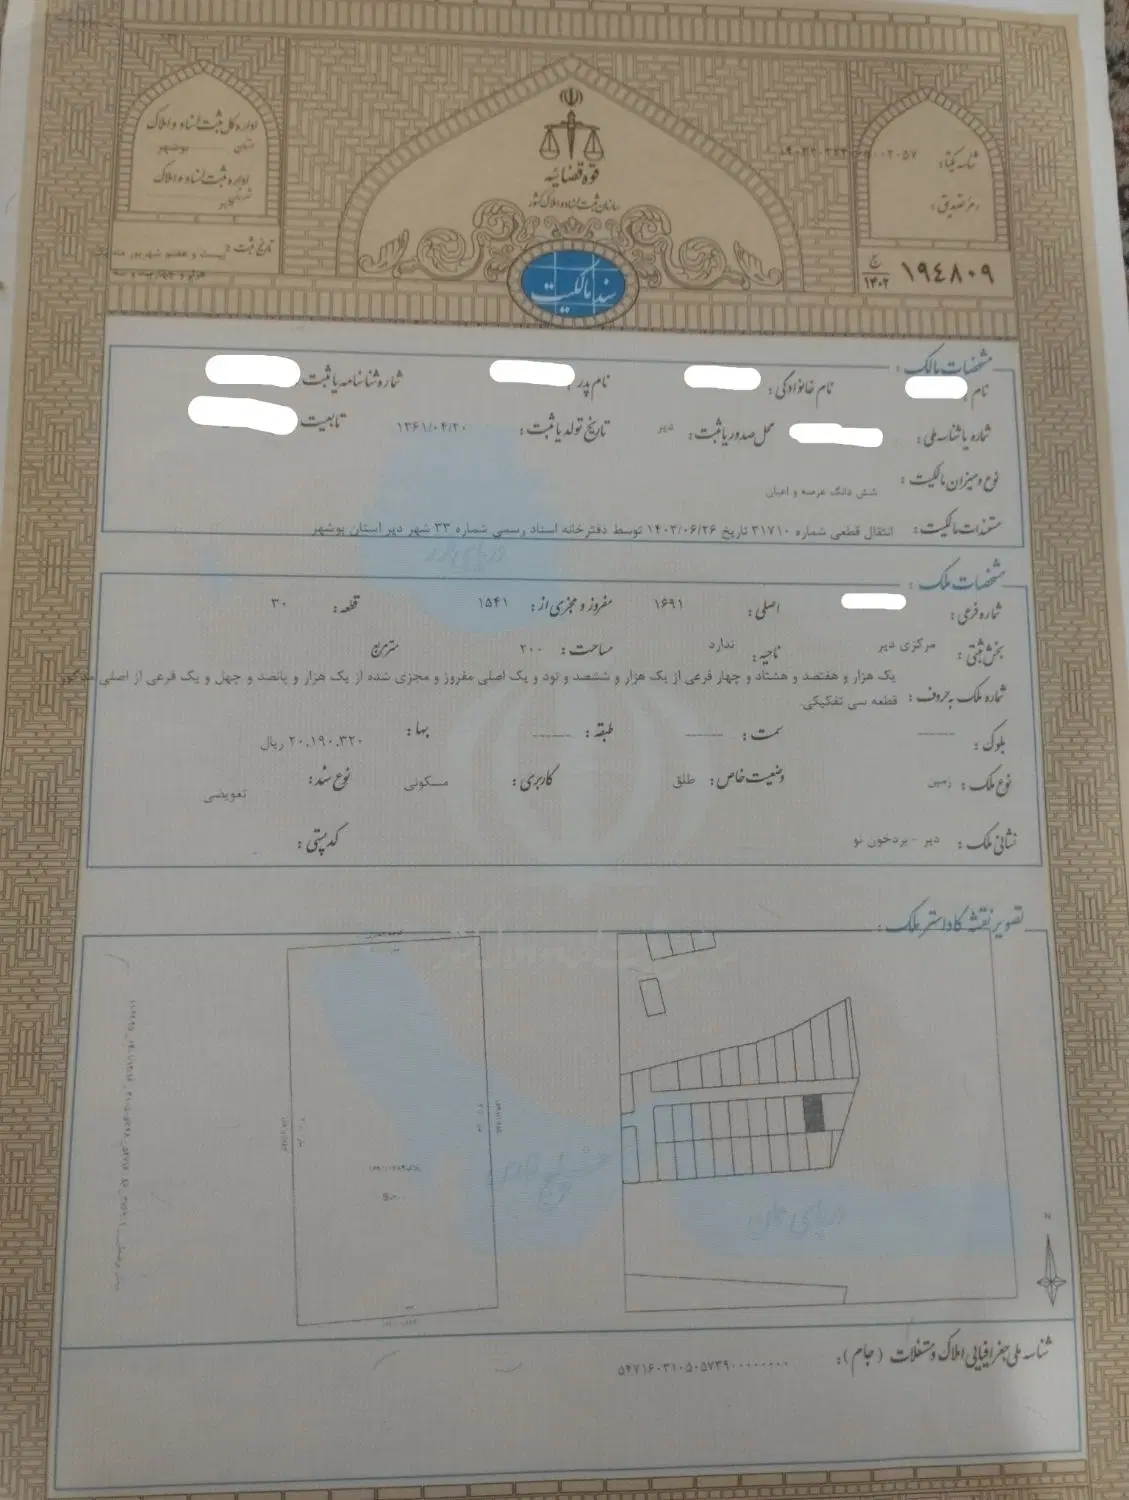 اداره کل ثبت اسناد و املاک
استان بوشهر
اداره ثبت اسناد و املاک
قوه قضائیه
سازمان ثبت اسناد و املاک کشور
شناسه یکتا:
رمز تصدیق:
تاریخ ثبت: بیست و هفتم شهریور ماه یک
هزار و چهارصد و سه
سند مالکیت
ج ۱۴۰۲ ۱۹۴۸۰۹
مشخصات مالک:
نام: نام خانوادگی: نام پدر: شماره شناسنامه یا ثبت
شماره یا شناسه ملی: محل صدور یا ثبت: دیر تاریخ تولد یا ثبت: ۱۳۶۱/۰۴/۲۰ تابعیت
نوع و میزان مالکیت: شش دانگ عرصه و اعیان
مستندات مالکیت: انتقال قطعی شماره ۳۱۷۱۰ تاریخ ۱۴۰۳/۰۶/۲۶ توسط دفترخانه اسناد رسمی شماره ۳۳ شهر دیر استان بوشهر
دریای خزر
مشخصات ملک:
شماره فرعی: اصلی: ۱۶۹۱ مفروز و مجزی از: ۱۵۴۱ قطعه: ۳۰
بخش ثبتی: مرکزی دیر ناحیه: ندارد مساحت: ۲۰۰ مترمربع
شماره ملک به حروف: یک هزار و هفتصد و هشتاد و چهار فرعی از یک هزار و ششصد و نود و یک اصلی مفروز و مجزی شده از یک هزار و پانصد و چهل و یک فرعی از اصلی مذکور
قطعه سی تفکیکی.
بلوک: ------ سمت: ------ طبقه: ------ بها: ۲۰,۱۹۰,۳۲۰ ریال
نوع ملک: زمین وضعیت خاص: طلق کاربری: مسکونی نوع سند: تعویضی
نشانی ملک: دیر - بردخون نو کدپستی:
تصویر نقشه کاداستر ملک:
خلیج فارس
دریای عمان
N
شناسه ملی جغرافیایی املاک و مستغلات (جام):